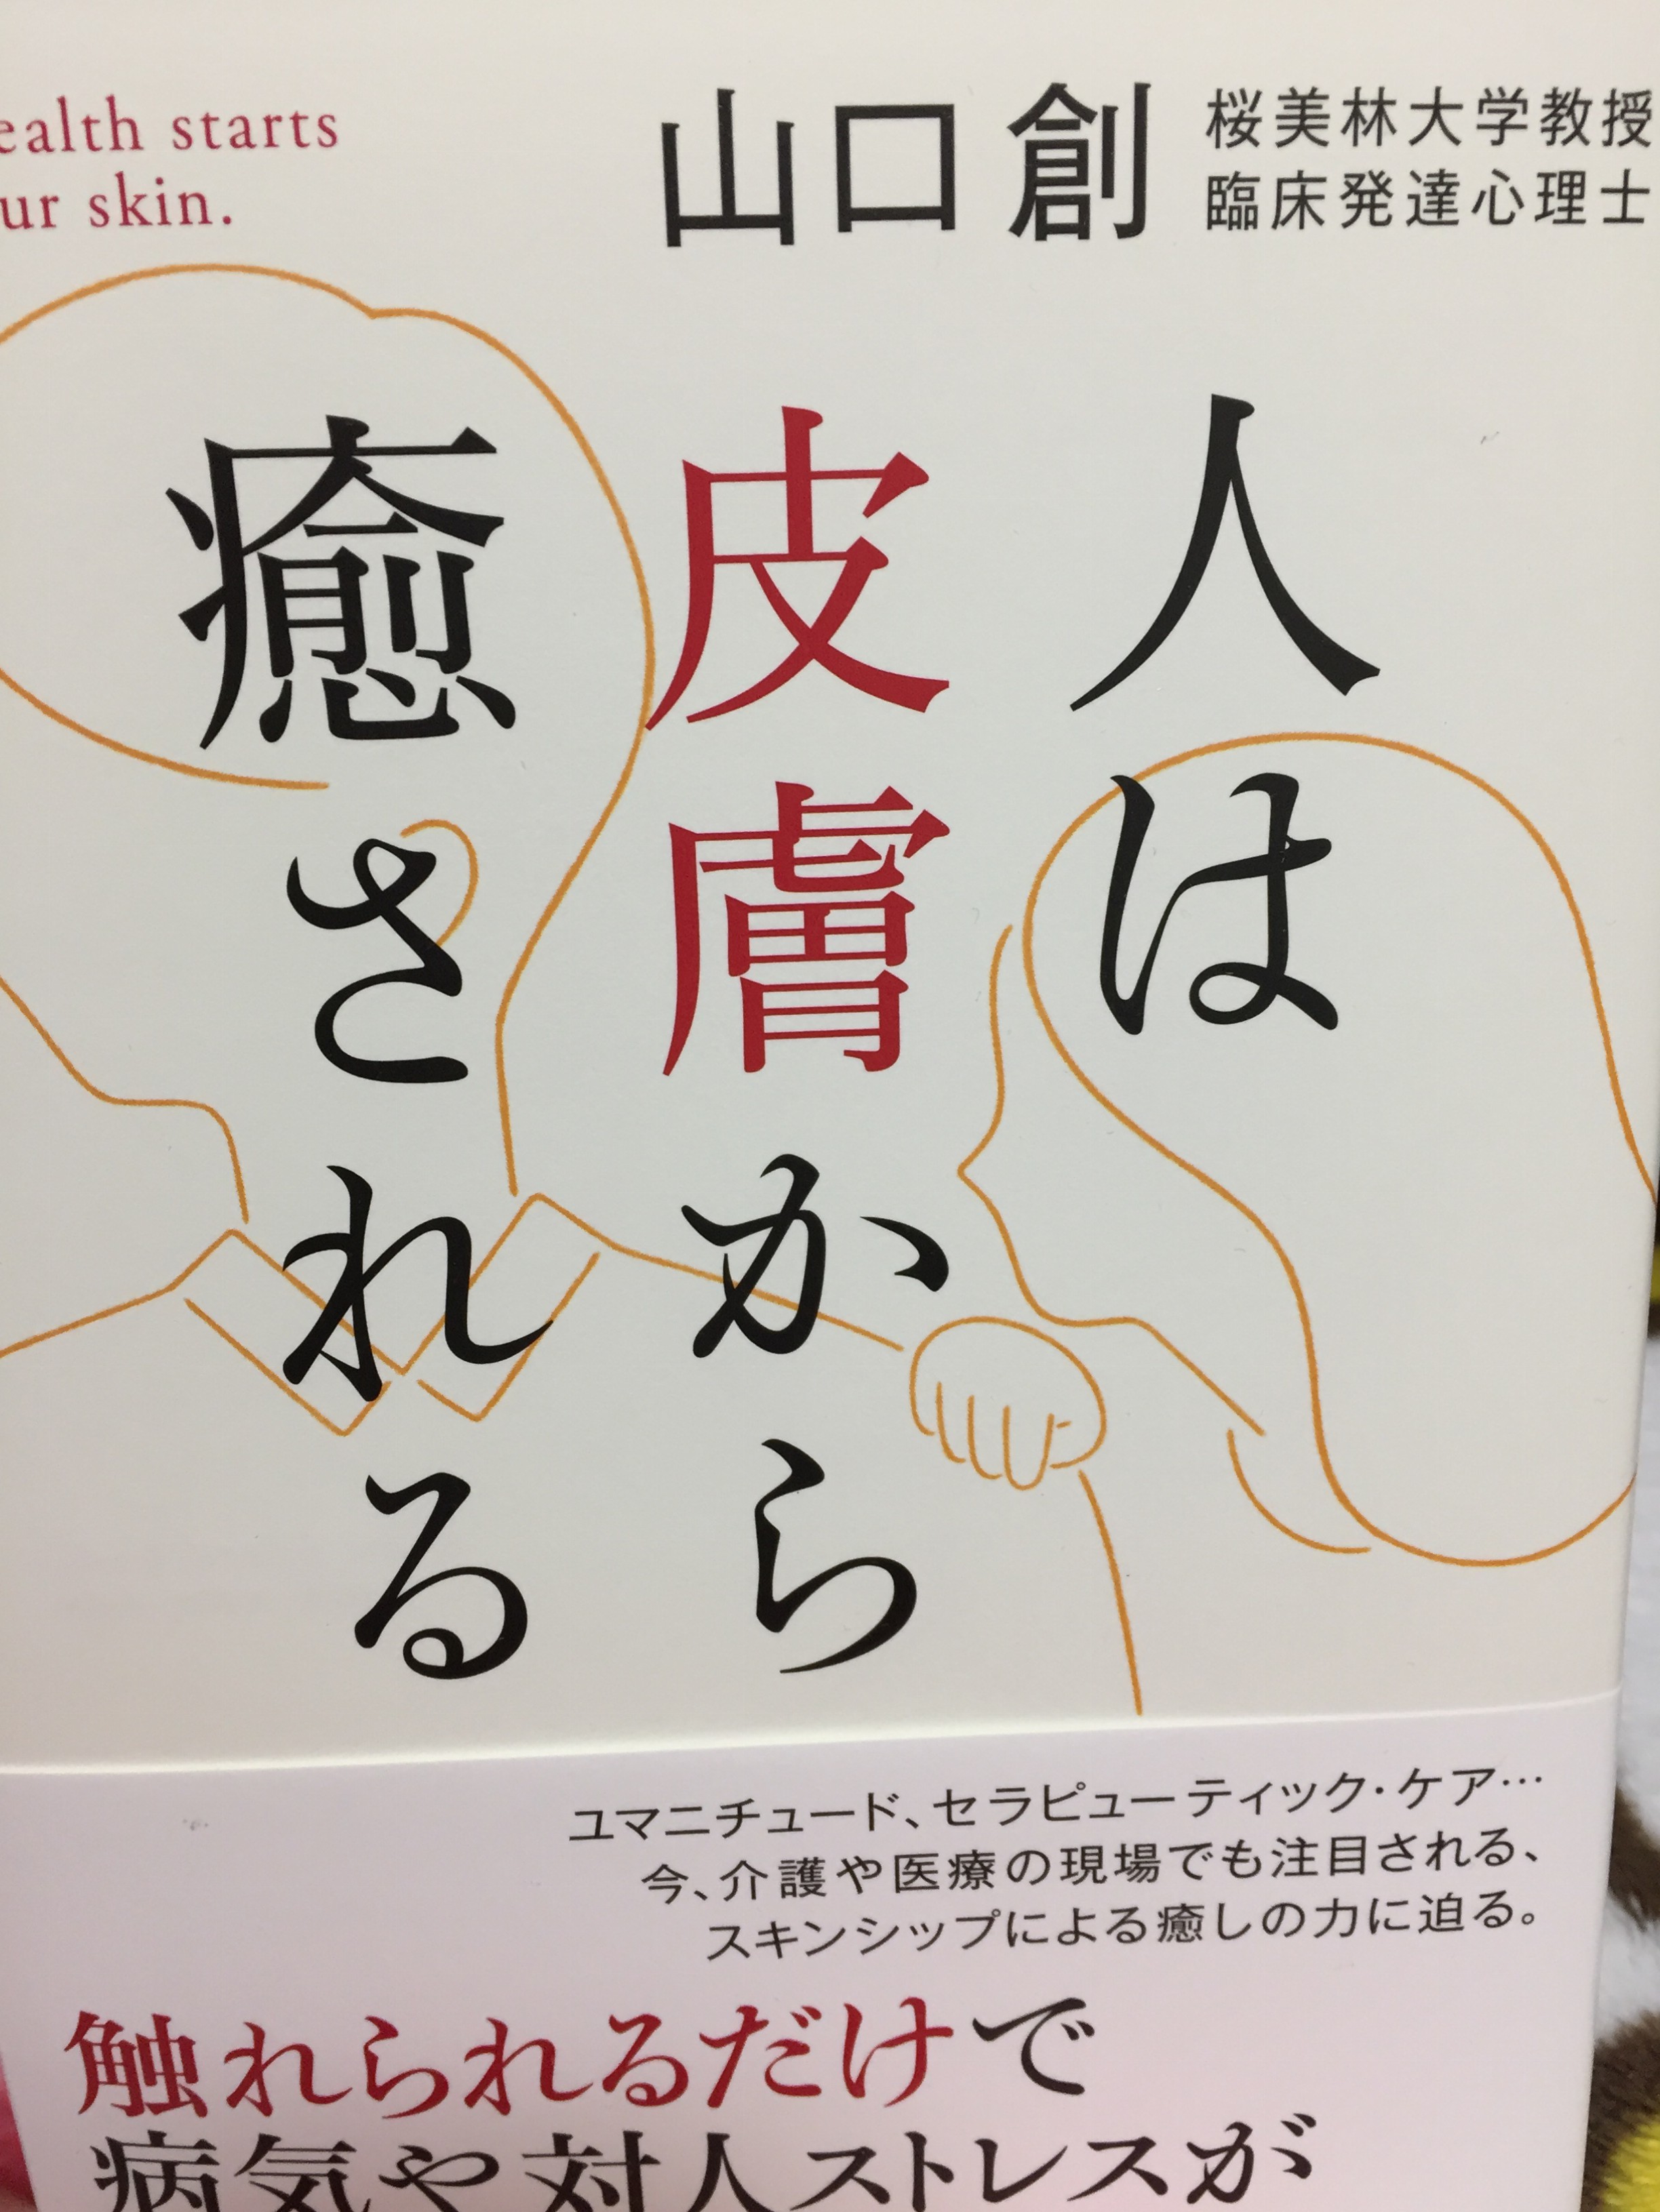 ealth starts
ur skin.
山口 創
桜美林大学教授
臨床発達心理士
人は
皮膚から
癒される
ユマニチュード、セラピューティック・ケア…
今、介護や医療の現場でも注目される、
スキンシップによる癒しの力に迫る。
触れられるだけで
病気や対人ストレスが